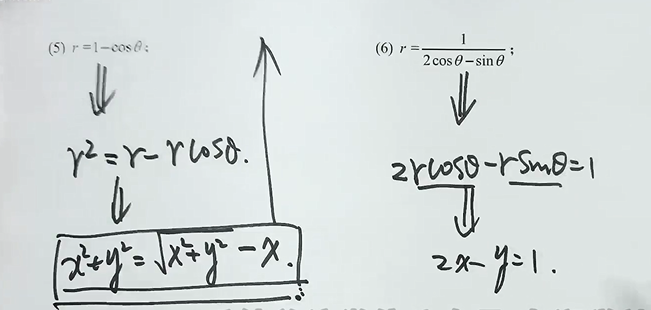 (5) r = 1 − cos θ;
r² = r − r cosθ.
x² + y² = √(x² + y²) − x.
(6) r = 1 / (2 cos θ − sin θ) ;
2r cosθ − r sinθ = 1
2x − y = 1.